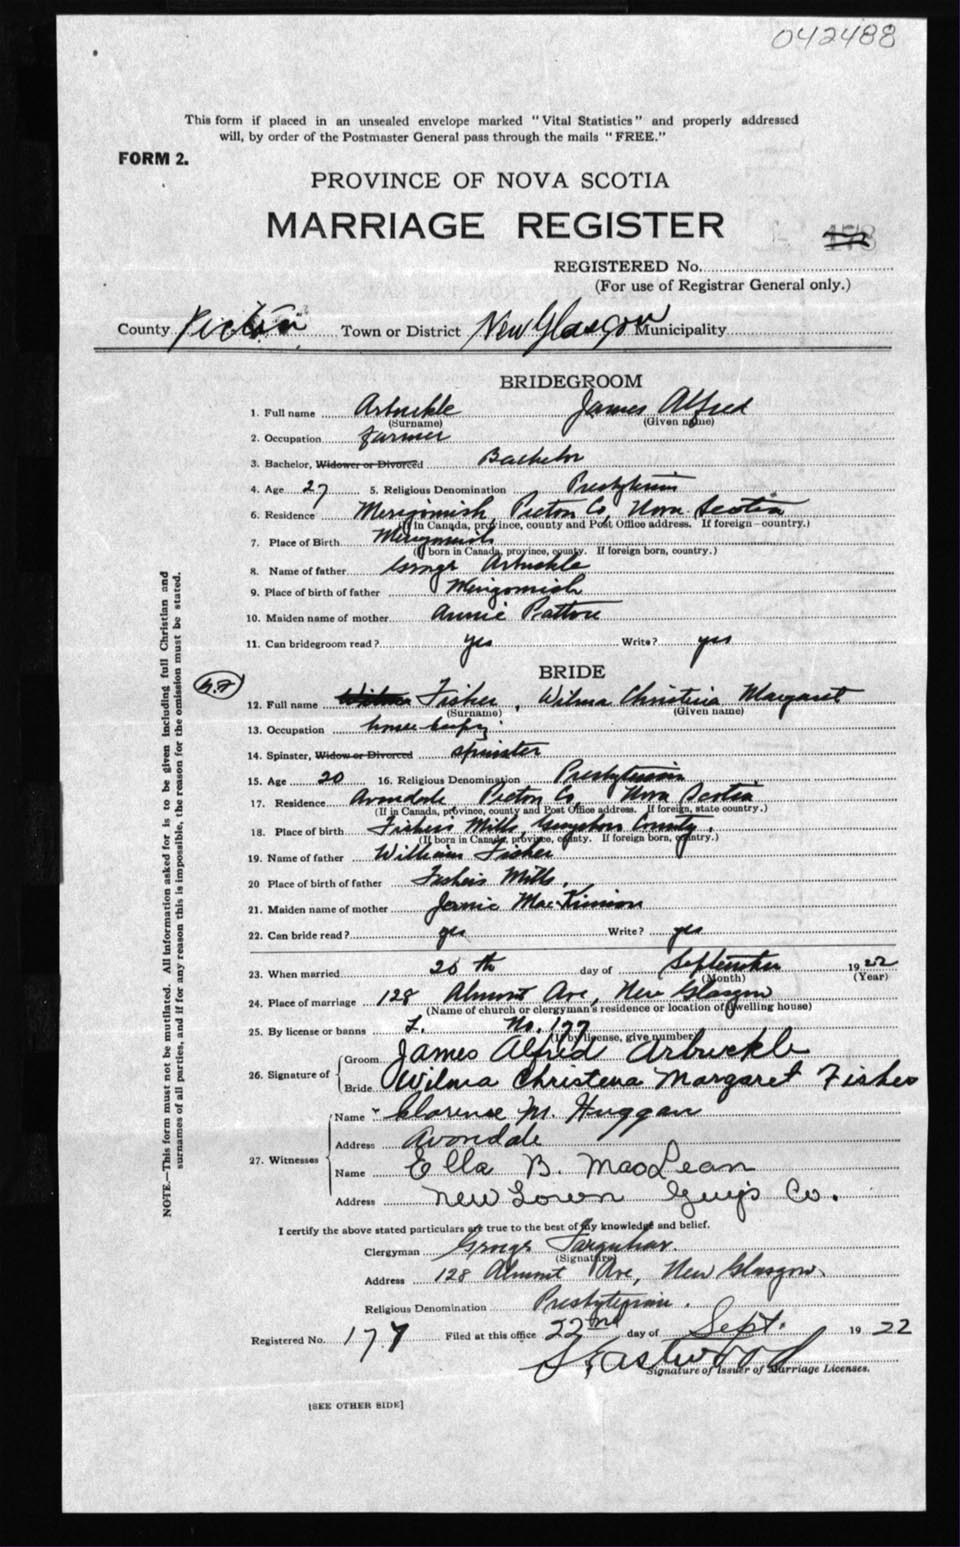 042488
This form if placed in an unsealed envelope marked "Vital Statistics" and properly addressed
will, by order of the Postmaster General pass through the mails "FREE."
FORM 2.
PROVINCE OF NOVA SCOTIA
MARRIAGE REGISTER
REGISTERED No.
(For use of Registrar General only.)
County Pictou Town or District New Glasgow Municipality
BRIDEGROOM
1. Full name Arbuckle James Alfred
(Surname) (Given name)
2. Occupation farmer
3. Bachelor, Widower or Divorced Bachelor
4. Age 27 5. Religious Denomination Presbyterian
6. Residence Merigomish Pictou Co, Nova Scotia
(If in Canada, province, county and Post Office address. If foreign—country.)
7. Place of Birth Merigomish
(If born in Canada, province, county. If foreign born, country.)
8. Name of father George Arbuckle
9. Place of birth of father Merigomish
10. Maiden name of mother Annie Patton
11. Can bridegroom read? yes Write? yes
BRIDE
12. Full name Wilma Fisher, Wilma Christina Margaret
(Surname) (Given name)
13. Occupation house
14. Spinster, Widow or Divorced spinster
15. Age 20 16. Religious Denomination Presbyterian
17. Residence Avondale Pictou Co, Nova Scotia
(If in Canada, province, county and Post Office address. If foreign, state country.)
18. Place of birth Fishers Mills, Guysboro County,
(If born in Canada, province, county. If foreign born, country.)
19. Name of father William Fisher
20 Place of birth of father Fishers Mills,
21. Maiden name of mother Jennie MacKinnon
22. Can bride read? yes Write? yes
23. When married 20th day of September 1922
(Month) (Year)
24. Place of marriage 128 Almont Ave, New Glasgow
(Name of church or clergyman's residence or location of dwelling house)
25. By license or banns L. No. 177
(If by license, give number)
26. Signature of
Groom James Alfred Arbuckle
Bride Wilma Christena Margaret Fisher
27. Witnesses
Name Clarence M. Huggan
Address Avondale
Name Ella B. MacLean
Address New Town Guy's Co.
I certify the above stated particulars are true to the best of my knowledge and belief.
Clergyman George Farquhar.
(Signature)
Address 128 Almont Ave, New Glasgow.
Religious Denomination Presbyterian.
Registered No. 177 Filed at this office 22nd day of Sept. 1922
Eastwood
Signature of Issuer of Marriage Licenses.
[SEE OTHER SIDE]
NOTE.—This form must not be mutilated. All information asked for is to be given including full Christian and
surnames of all parties, and if for any reason this is impossible, the reason for the omission must be stated.